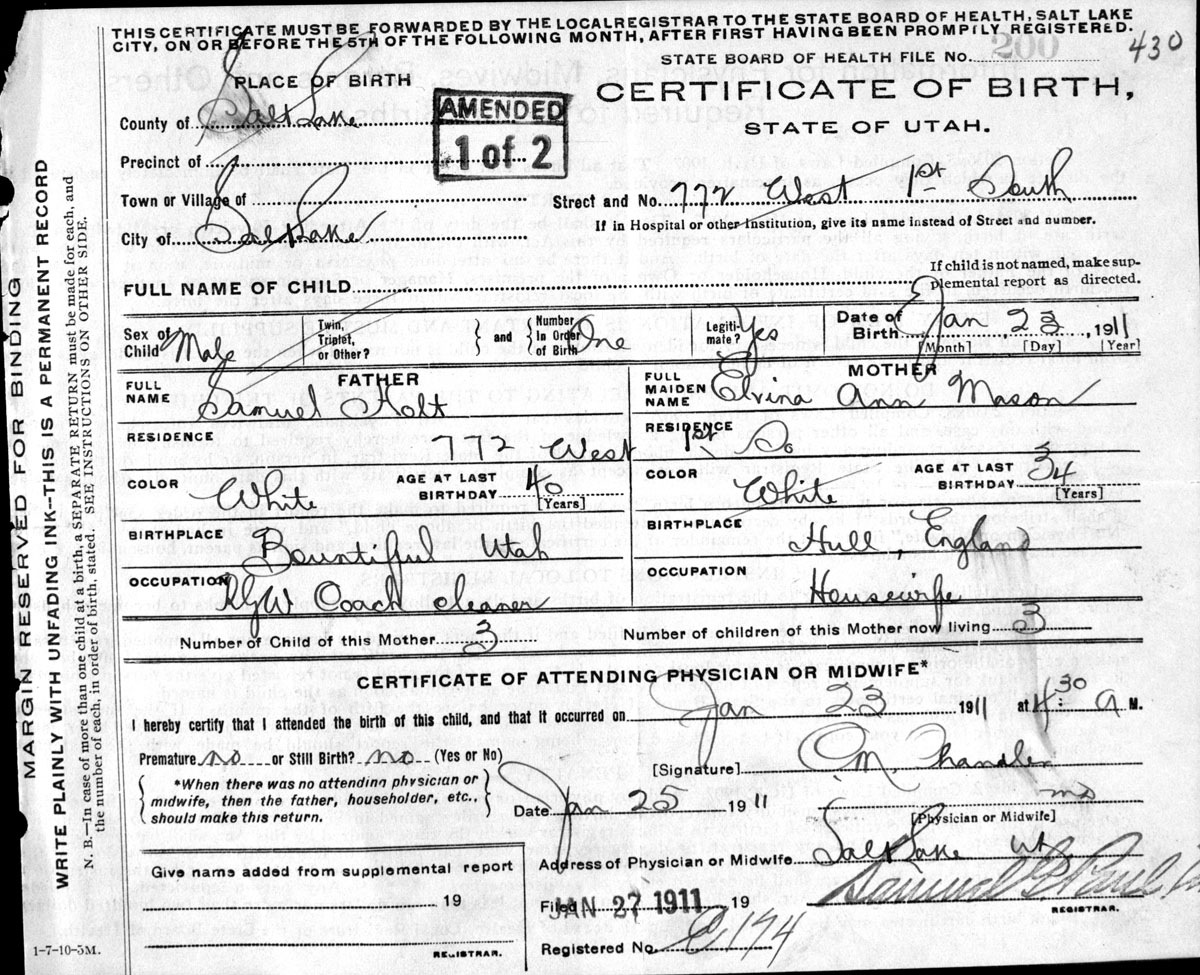 THIS CERTIFICATE MUST BE FORWARDED BY THE LOCAL REGISTRAR TO THE STATE BOARD OF HEALTH, SALT LAKE
CITY, ON OR BEFORE THE 5TH OF THE FOLLOWING MONTH, AFTER FIRST HAVING BEEN PROMPILY REGISTERED.
STATE BOARD OF HEALTH FILE NO. 200 430
PLACE OF BIRTH
CERTIFICATE OF BIRTH,
STATE OF UTAH.
AMENDED
1 of 2
County of Salt Lake
Precinct of
Town or Village of
Street and No. 772 West 1st South
City of Salt Lake
If in Hospital or other Institution, give its name instead of Street and number.
FULL NAME OF CHILD
If child is not named, make sup-
plemental report as directed.
Sex of Child Male
Twin, Triplet, or Other?
and Number In Order of Birth One
Legiti-mate? Yes
Date of Birth Jan 23, 1911
[Month] [Day] [Year]
FATHER
FULL NAME Samuel Holt
MOTHER
FULL MAIDEN NAME Elvina Ann Mason
RESIDENCE 772 West
RESIDENCE 1st So
COLOR White
AGE AT LAST BIRTHDAY 40 [Years]
COLOR White
AGE AT LAST BIRTHDAY 34 [Years]
BIRTHPLACE Bountiful Utah
BIRTHPLACE Hull, England
OCCUPATION RGW Coach cleaner
OCCUPATION Housewife
Number of Child of this Mother 3
Number of children of this Mother now living 3
CERTIFICATE OF ATTENDING PHYSICIAN OR MIDWIFE*
I hereby certify that I attended the birth of this child, and that it occurred on Jan 23 1911 at 4:30 A M.
Premature no or Still Birth? no (Yes or No)
*When there was no attending physician or
midwife, then the father, householder, etc.,
should make this return.
[Signature] Chandler
MD
Date Jan 25 1911
[Physician or Midwife]
Give name added from supplemental report
19
REGISTRAR.
Address of Physician or Midwife Salt Lake Ut
Filed JAN 27 1911 19
Samuel G. Paul
REGISTRAR.
Registered No. 174
1-7-10-5M.
MARGIN RESERVED FOR BINDING
WRITE PLAINLY WITH UNFADING INK—THIS IS A PERMANENT RECORD
N. B.—In case of more than one child at a birth, a SEPARATE RETURN must be made for each, and
the number of each, in order of birth, stated. SEE INSTRUCTIONS ON OTHER SIDE.